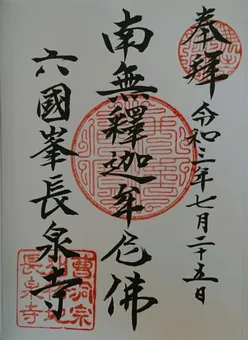 奉拜
令和三年七月二十五日
南無釋迦牟尼佛
六國峯長泉寺
曹洞宗
長泉寺